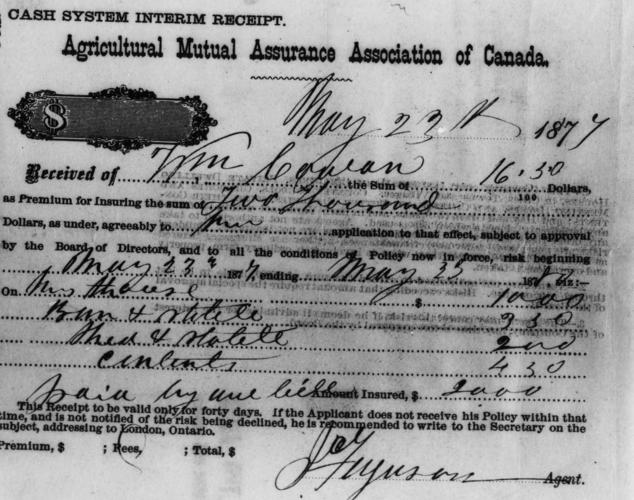 CASH SYSTEM INTERIM RECEIPT.
Agricultural Mutual Assurance Association of Canada.
$
May 23rd 1877
Received of Wm Cowan
the Sum of 16.30/100 Dollars,
as Premium for Insuring the sum of Two Thousand
Dollars, as under, agreeably to his application to that effect, subject to approval
by the Board of Directors, and to all the conditions of Policy now in force, risk beginning
May 23rd 1877, ending May 23 18 viz:—
On his House $ 1000
Barn & Stable 350
Shed & Stable 200
Contents 450
paid by one bill Amount Insured, $ 2000
This Receipt to be valid only for forty days. If the Applicant does not receive his Policy within that
time, and is not notified of the risk being declined, he is recommended to write to the Secretary on the
subject, addressing to London, Ontario.
Premium, $ ; Fees, ; Total, $
Ferguson Agent.